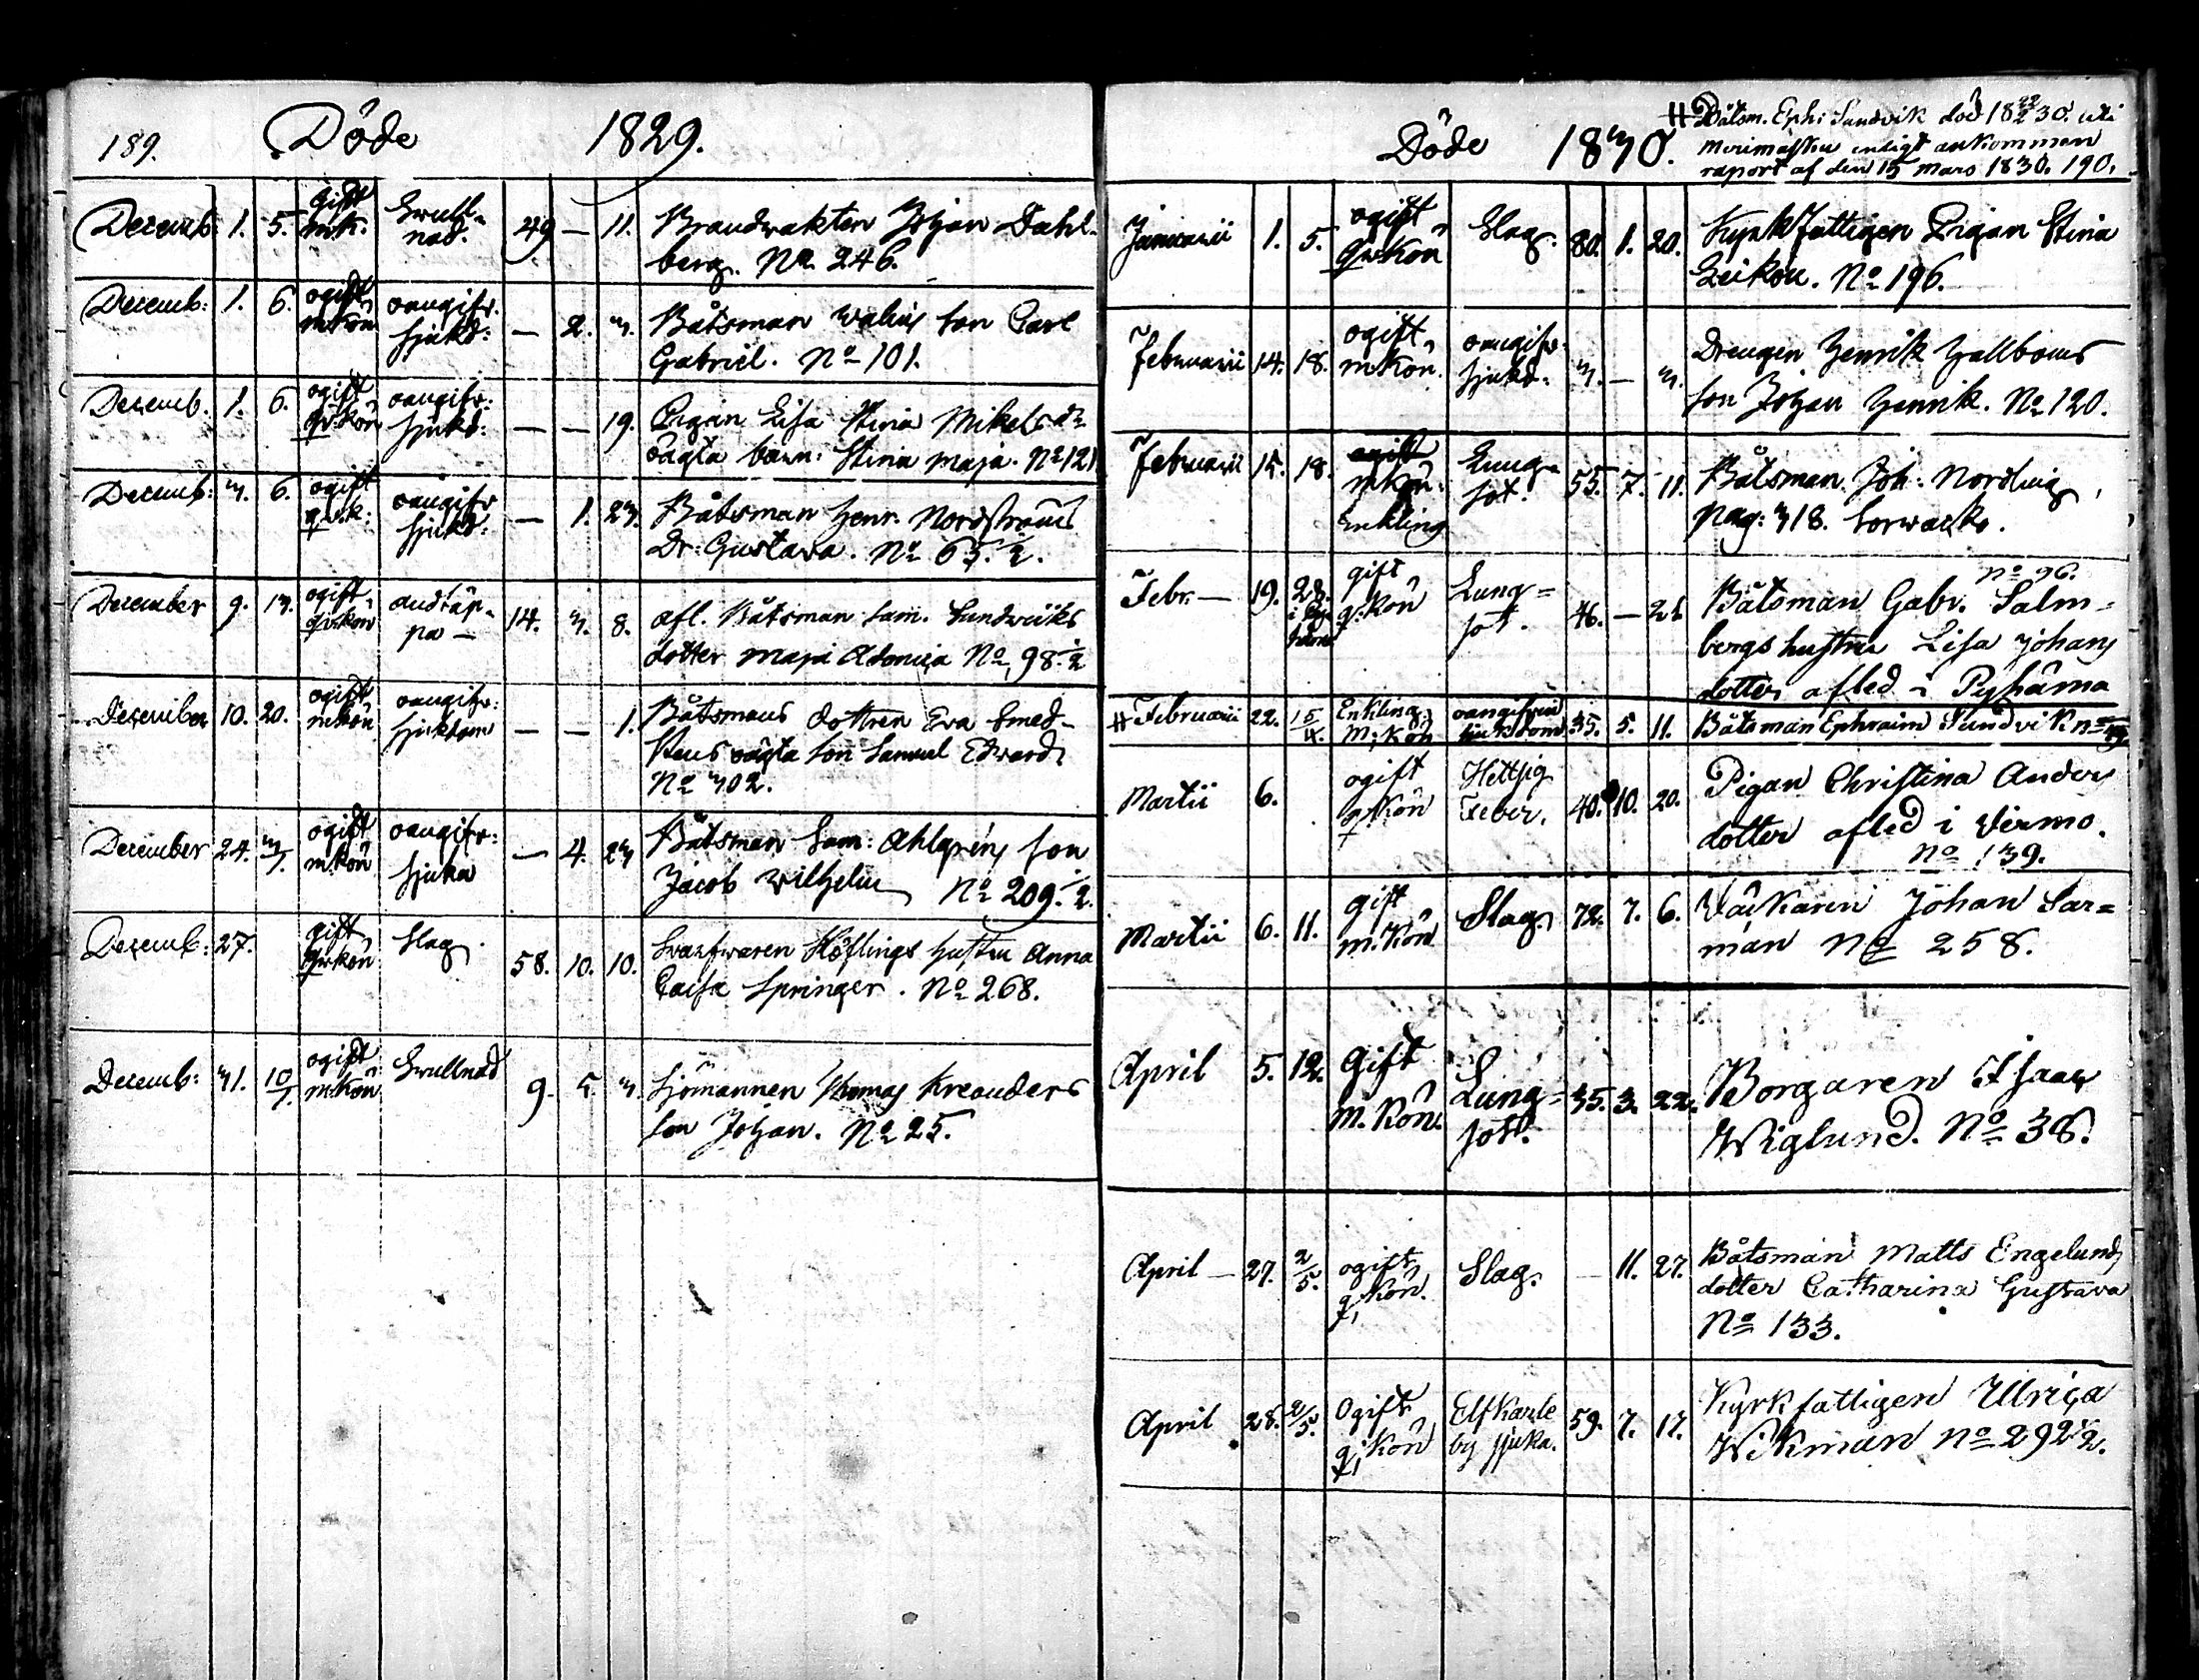 189. Döde 1829.
Decemb: 1. 5. gift mk. Swull-
nad. 49 — 11. Brandwakten Johan Dahl-
berg. No 246.
Decemb: 1. 6. ogift mkön oangifv.
sjukd: — 2. 3. Båtsman Walins son Carl
Gabriel. No 101.
Decemb. 1. 6. ogift qv.kön oangifv:
sjukd: — — 19. Pigan Lisa Stina Mikelsdr
oägta barn: Stina Maja. No 121
Decemb: 3. 6. ogift qv.k: oangifv
sjukd: — 1. 23. Båtsman Henr. Nordströms
Dr: Gustava. No 65.½.
December 9. 13. ogift qv.kön andtäp-
pa — 14. 3. 8. afl. Båtsman Sam. Sundwiiks
dotter Maja Adonica No 98.½
December 10. 20. ogift mkön oangifv:
sjukdom — — 1. Båtsmans dottren Eva Smed-
stens oägta son Samuel Edward.
No 302.
December 24. 3/1. ogift mkön oangifv:
sjuka — 4. 23 Båtsman Sam: Ahlgrens son
Jacob Wilhelm No 209.½.
Decemb: 27. gift qv.kön Slag. 58. 10. 10. Swarfwaren Höflings hustru Anna
Caisa Springer. No 268.
Decemb: 31. 10/1. ogift mkön Swullnad 9. 5. 3. Sjömannen Thomas Kreanders
son Johan. No 25.
Döde 1830.
# Båtsm. Eph: Sundvik död 18 22/2 30. uti
enligt ankommen
raport af den 15 Mars 1830. 190.
Januarii 1. 5. ogift qv.kön Slag. 80. 1. 20. Kyrkfattigen Pigan Stina
Leikon. No 196.
Februarii 14. 18. ogift mkön. oangifv:
sjukd. 3. — 3. Drengen Henrik Hallboms
son Johan Henrik. No 120.
Februarii 15. 18. ogift mkön. Enkling Lung-
sot. 55. 7. 11. Båtsman Joh: Nordling,
pag: 318.
Febr. — 19. 28. gift q.kön Lung=
sot. 46. — 21 no 96.
Båtsman Gabr. Salm=
bergs hustru Lisa Johans
dotter afled i Pyhäma
# Februarii 22. 15/4. Enkling. M; kön oangifven
sjukdom 35. 5. 11. Båtsman Ephraim Sundvik
Martii 6. ogift q. kön Hettsig
Feber. 40. 10. 20. Pigan Christina Anders
dotter afled i Virmo.
No 139.
Martii 6. 11. gift m. kön Slag. 72. 7. 6. Väckaren Johan Sar=
man No 258.
April 5. 12. Gift M. Kön. Lung=
sot. 35. 3. 22. Borgaren Isaac
Wiglund. No 38.
April — 27. 2/5. ogift q; kön. Slag. — 11. 27. Båtsman Matts Engelunds
dotter Catharina Gustava
No 133.
April 28. 2/5. Ogift q; kön Elfkarle
by sjuka. 59. 7. 17. Kyrkfattigen Ulrica
Wikman No 292½.